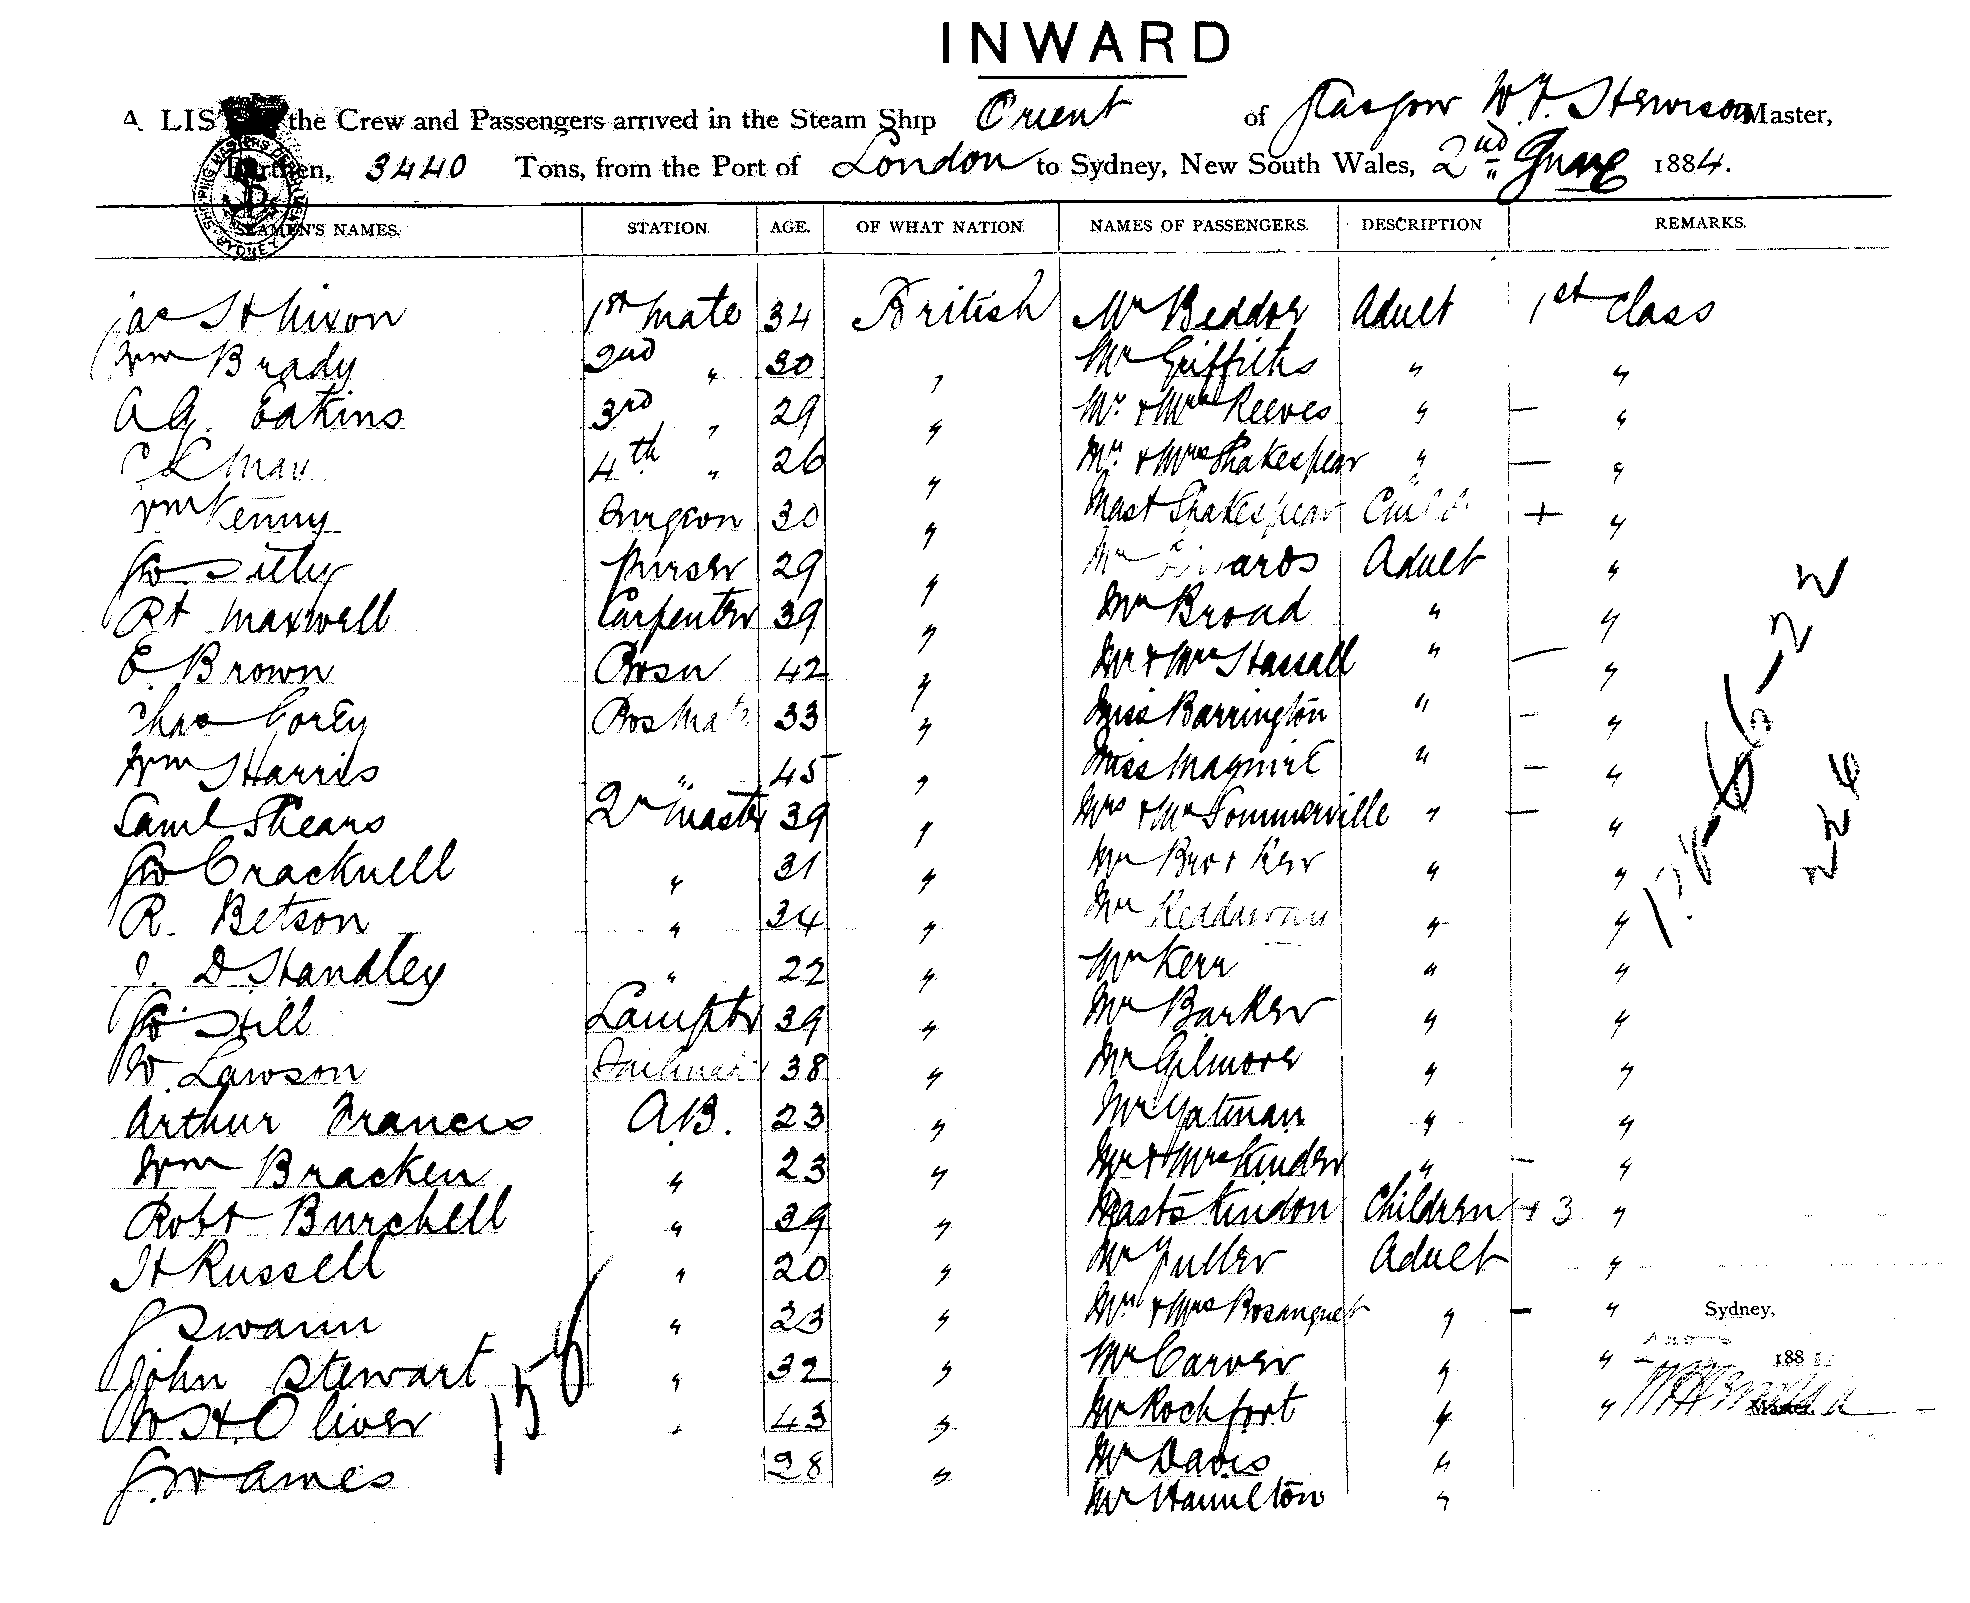 INWARD
A LIS the Crew and Passengers arrived in the Steam Ship Orient of Glasgow W. F. Stewison Master,
Burthen, 3440 Tons, from the Port of London to Sydney, New South Wales, 2nd June 1884.
SEAMEN'S NAMES. STATION. AGE. OF WHAT NATION. NAMES OF PASSENGERS. DESCRIPTION REMARKS.
Jas H Nixon 1st Mate 34 British Mr Beddor Adult 1st Class
Wm Brady 2nd " 30 " Mr Griffiths " "
A G. Eakins 3rd " 29 " Mr. & Mrs Reeves " — "
C May 4th " 26 " Mr. & Mrs Shakespear " — "
Wm Kenny Surgeon 30 " Mast Shakespear Child + "
Purser 29 " Mr Adult "
Rt Maxwell Carpenter 39 " Mr Broad " "
E. Brown Bosn 42 " Mr & Mrs Hassall " — "
Chas Corey Bos Mate 33 " Miss Barrington " — "
Wm Harris " 45 " Miss Maguire " — "
Saml Shears Qr Master 39 " Mrs & Mr Sommerville " — "
Geo Cracknell " 31 " Mr Kerr " "
R. Betson " 34 " Mr " "
J. D Standley " 22 " Mr Kerr " "
Geo. Hill Lamptr 39 " Mr Barker " "
W. Lawson 38 " Mr Gilmore " "
Arthur Francis A.B. 23 " Mr Yatman " "
Wm Bracken " 23 " Mr & Mrs Kinder " — "
Robt Burchell " 39 " Masts Kindon Children + 3 "
H Russell " 20 " Mr Fuller Adult "
J Swann " 23 " Mr & Mrs Bosanquet " — " Sydney,
John Stewart " 32 " Mr Carver " " 188
W H. Oliver " 43 " Mr Rochfort " " Master.
G. W Ames 28 " Mr Davis "
Mr Hamilton "
156
226